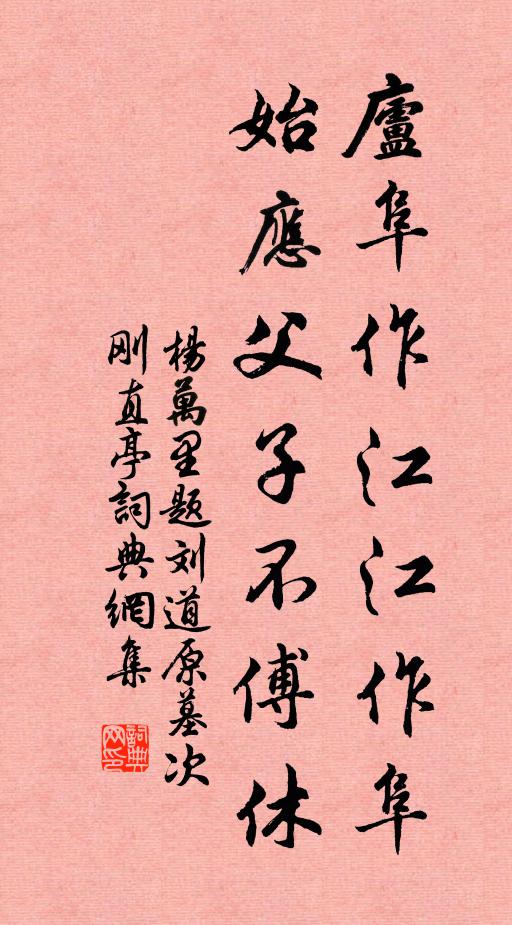 廬阜作江江作阜
始應父子不傅休
楊萬里題刘道原墓次
刚直亭詞典網集
詞典网印